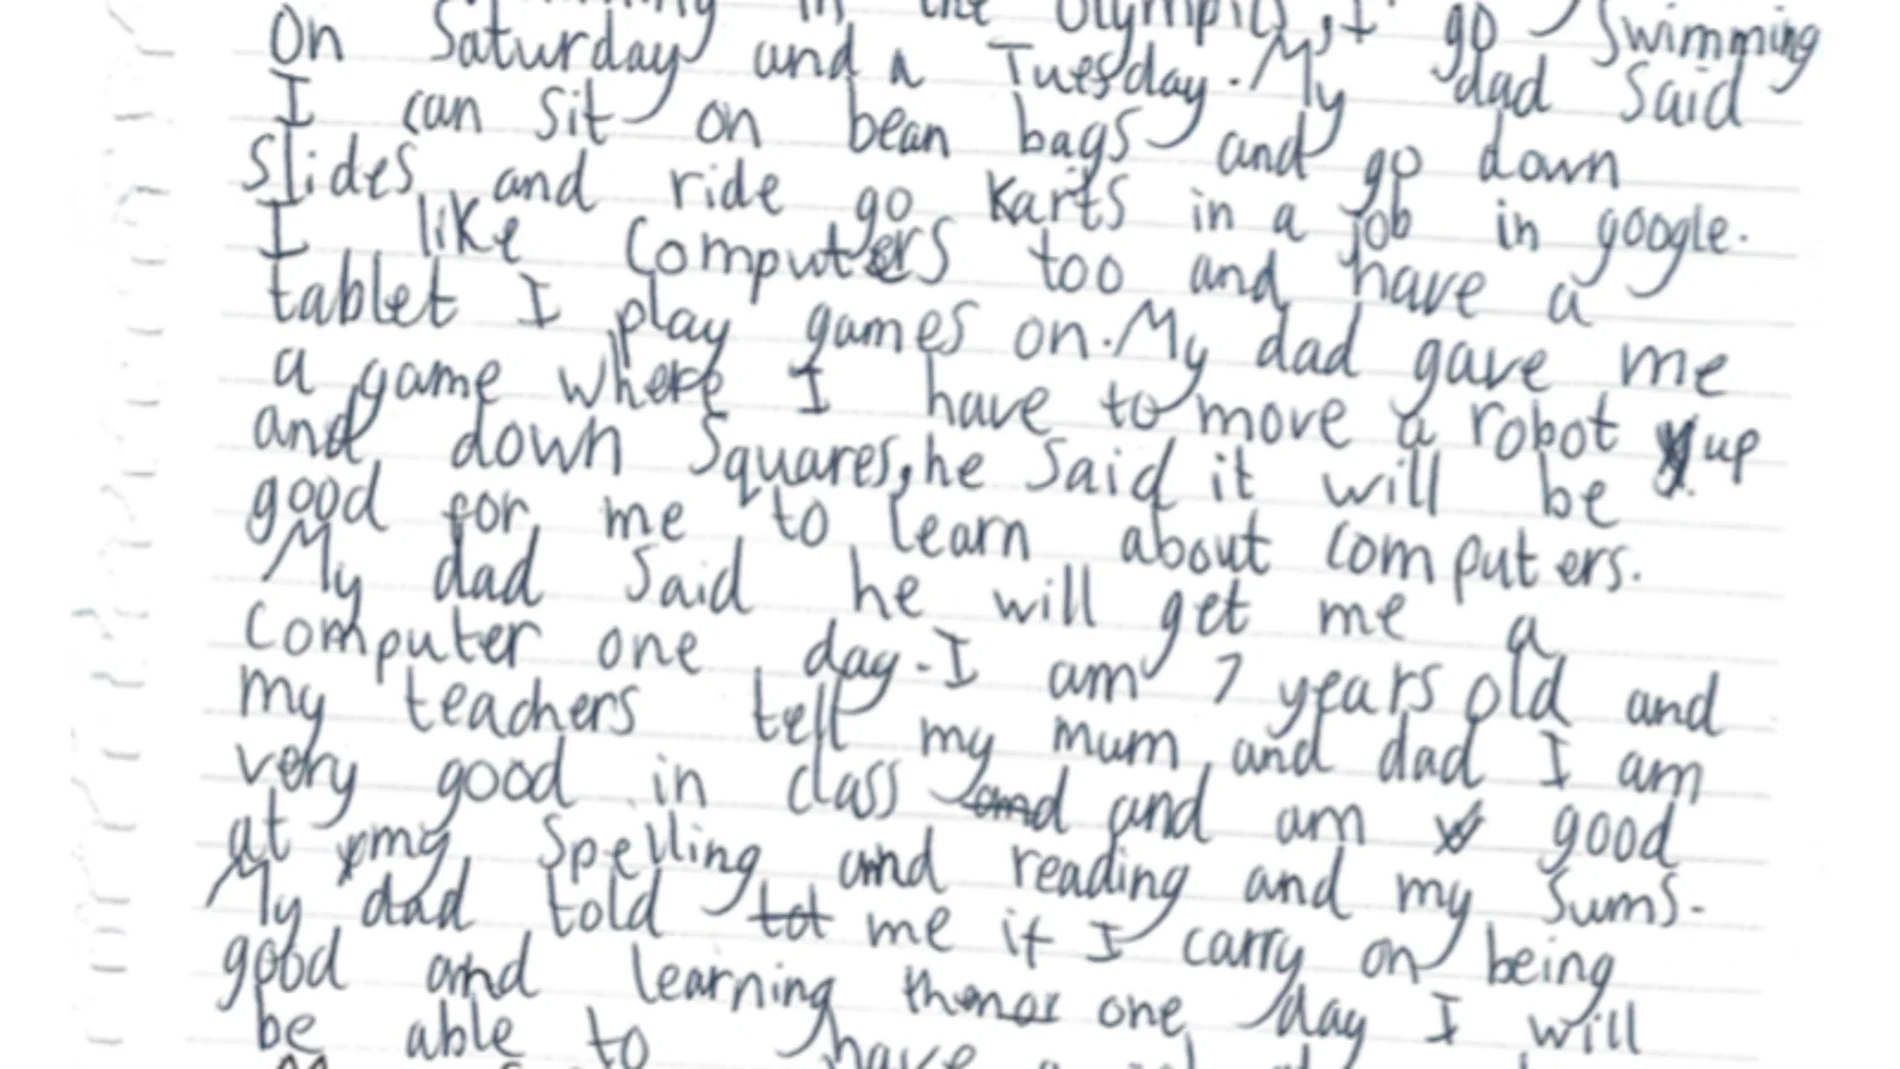 in the Olympics, I go Swimming
On Saturday and a Tuesday. My dad said
I can sit on bean bags and go down
slides and ride go karts in a job in google.
I like computers too and have a
tablet I play games on. My dad gave me
a game where I have to move a robot up
and down squares, he said it will be
good for me to learn about computers.
My dad said he will get me a
computer one day. I am 7 years old and
my teachers tell my mum and dad I am
very good in class and and am good
at my spelling and reading and my sums.
My dad told tot me if I carry on being
good and learning one day I will
be able to have a